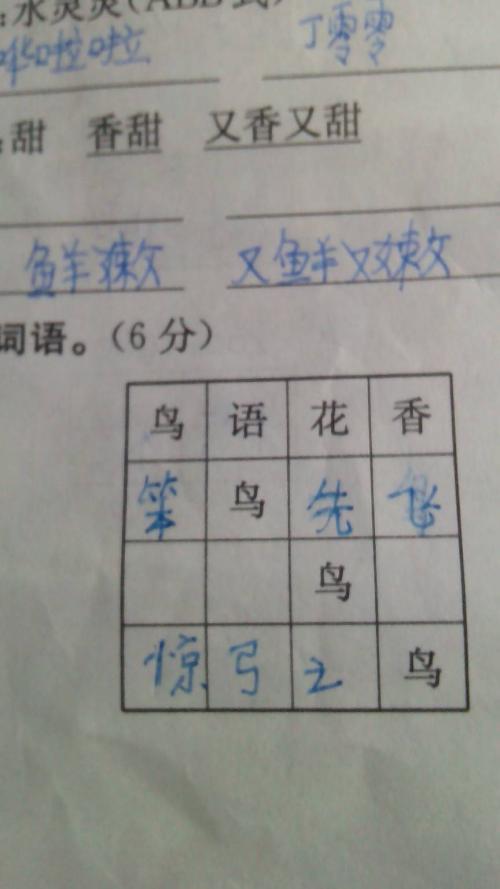 :水灵灵(ABB式)
哗啦啦 丁零零
甜 香甜 又香又甜
鲜嫩 又鲜又嫩
词语。(6分)
鸟 语 花 香
笨 鸟 先 飞
鸟
惊 弓 之 鸟